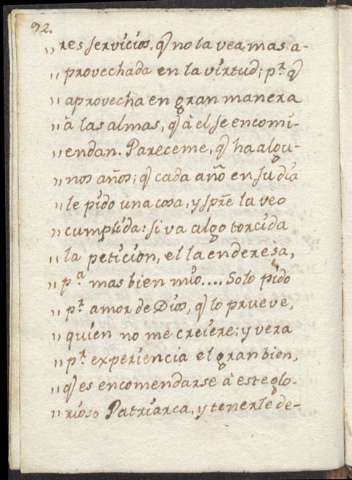 92.
,, res servicios, q̃ no la vea mas a-
,, provechada en la virtud; pr. q̃
,, aprovecha en gran manera
,, à las almas, q̃ à el se encomi-
,, endan. Pareceme, q̃ ha algu-
,, nos años; q̃ cada año en su dia
,, le pido una cosa, y spr̃e la veo
,, cumplida: si va algo torcida
,, la peticion, el la enderesa,
,, pa. mas bien mio.... Solo pido
,, pr. amor de Dios, q̃ lo prueve,
,, quien no me creiere; y vera
,, pr. experiencia el gran bien,
,, q̃ es encomendarse à este glo-
,, rioso Patriarca, y tenerle de-